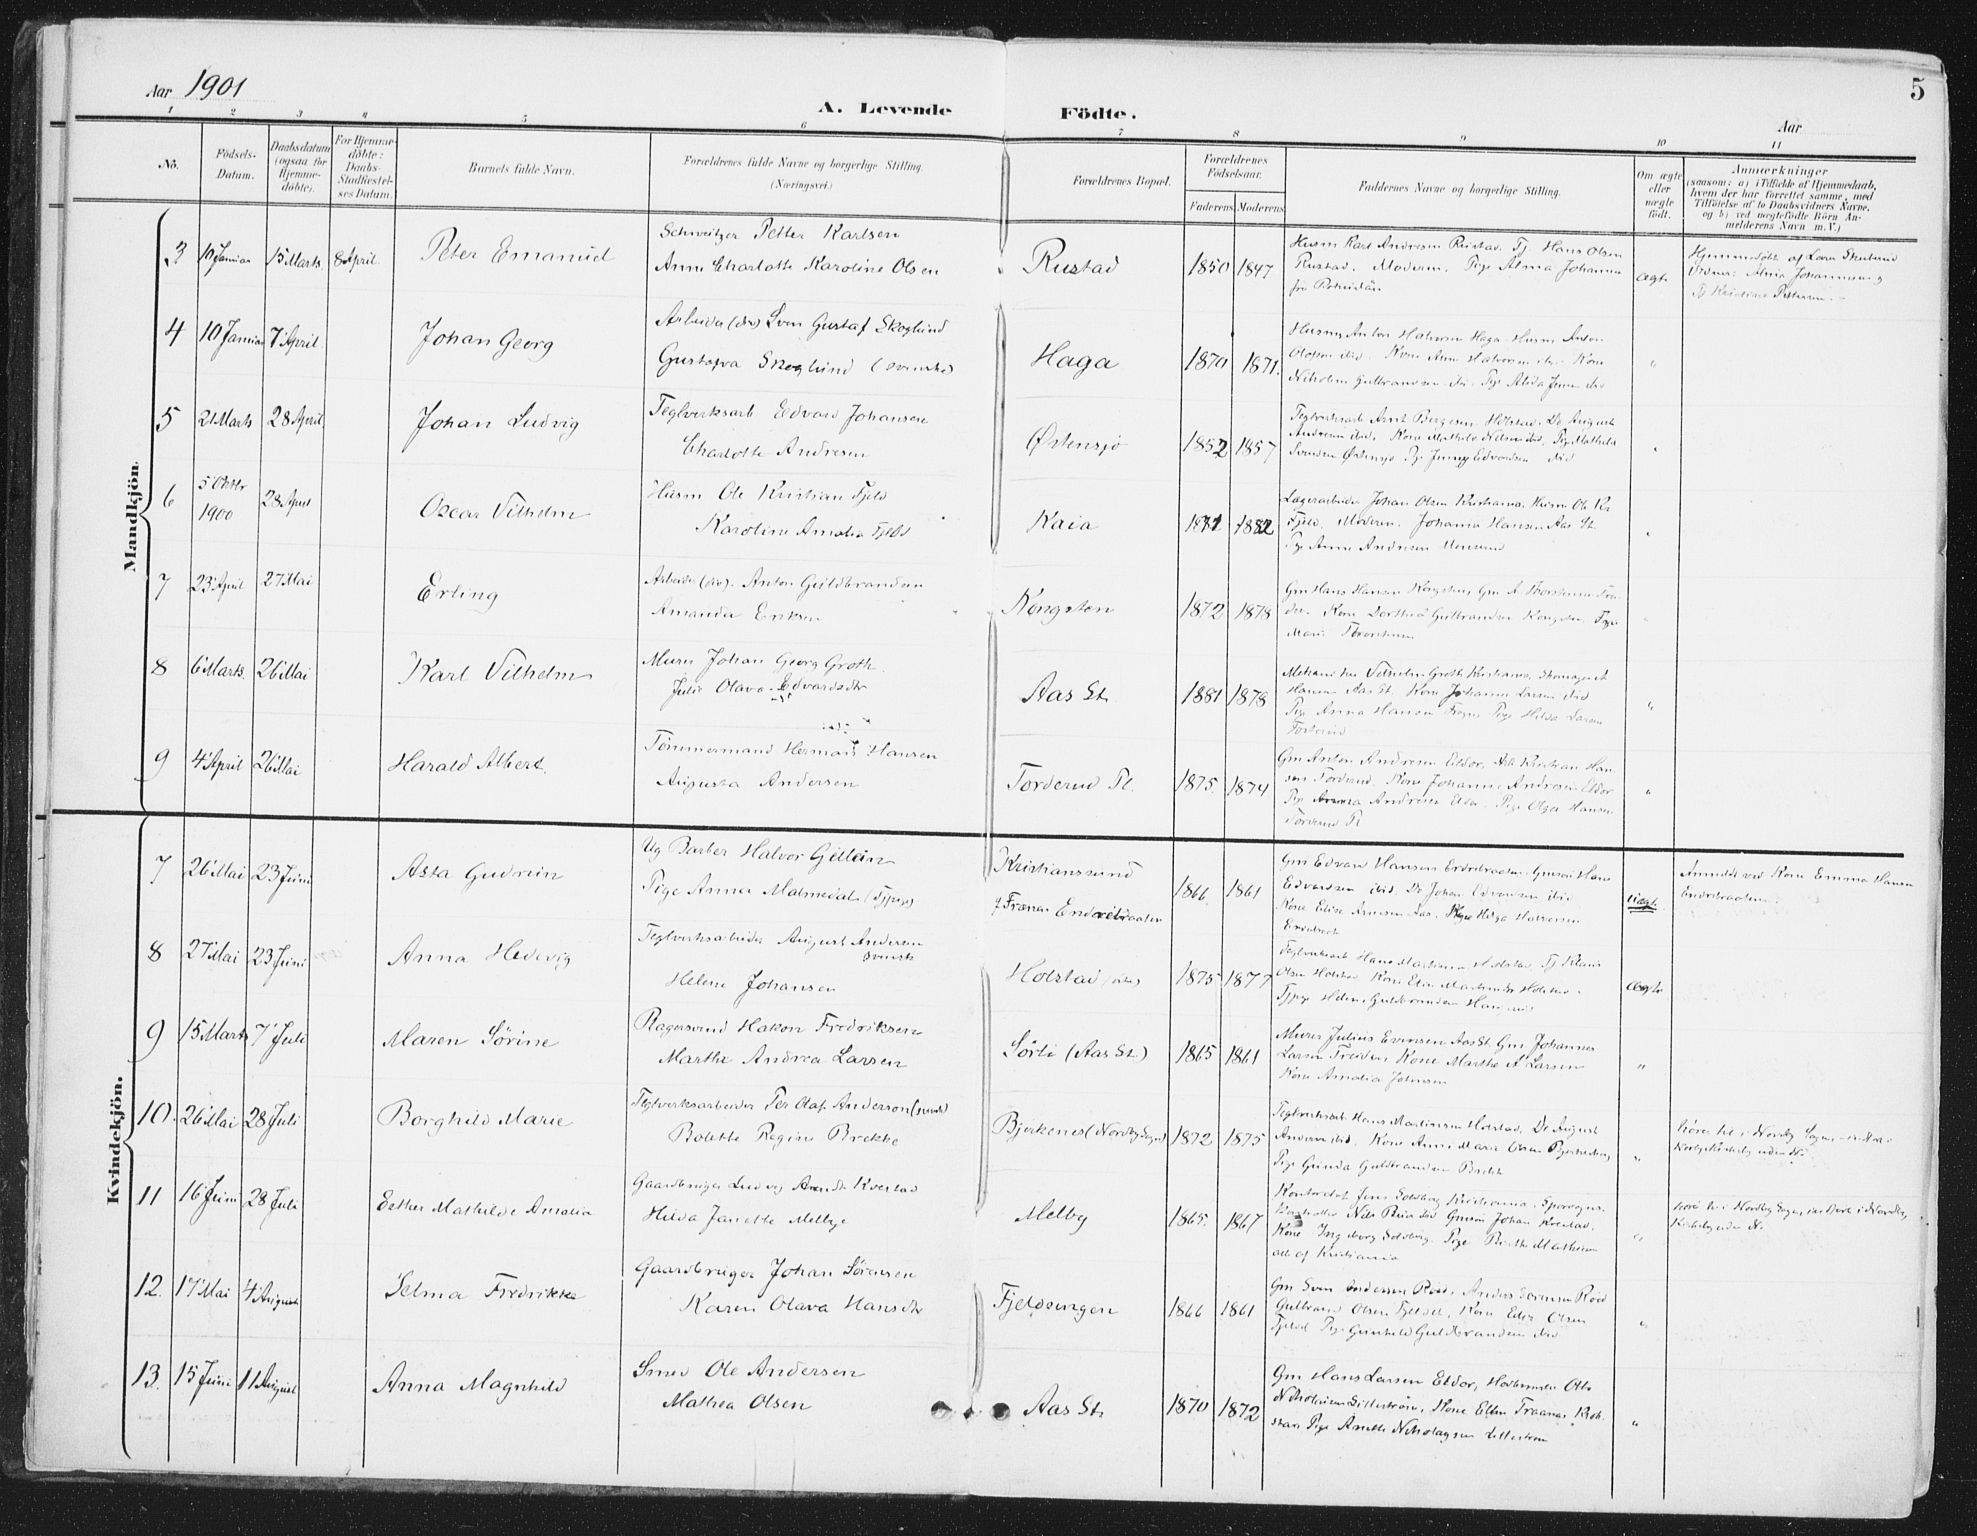 Aar 1901
A. Levende Födte.
Aar
5
1 2 3 4 5 6 7 8 9 10 11
No.
Födsels-Datum.
Daabsdatum (ogsaa för Hjemme-döbte).
For Hjemme-döbte: Daabs-Stadfæstel-ses Datum.
Barnets fulde Navn.
Forældrenes fulde Navne og borgerlige Stilling. (Næringsvei.)
Forældrenes Bopæl.
Forældrenes Födselsaar.
Faderens. Moderens.
Faddernes Navne og borgerlige Stilling.
Om ægte eller uægte födt.
Anmærkninger
(saasom: a) i Tilfælde af Hjemmedaab, hvem der har forrettet samme, med Tilföielse af to Daabsvidners Navne. og b) ved uægtefödte Börn An-melderens Navn m. V.)
Mandkjön.
3 10 Januar 15 Marts 8 April Peter Emanuel
Schweitzer Petter Karlsen
Anne Charlotte Karoline Olsen
Rustad 1850 1847
Husm Karl Andresen Rustad. Tj. Hans Olsen
Rustad. Moderen. Pige Alma Johanne
ægte
Hjemmedöbt af
4 10 Januar 7 April Johan Georg
Arbeider (do) Sven Gustaf Skoglund
Gustafva Skoglund (svenske)
Haga 1870 1871.
Husm Anton Halvorsen Haga. Husm Anton
"
5 21 Marts 28 April Johan Ludvig
Teglverksarb Edvard Johansen
Charlotte Andresen
Østensjö 1852 1857
Teglverksarb Arnt Bergesen Holstad. Do August
Andresen ibid, Kone Mathilde Nilsen ibid, Pige Mathilde
Svendsen Østensjö Pige Jenny Edvardsen ibid
"
6 5 Oktbr 1900 28 April Oscar Vilhelm
Husm Ole Kristian Fjeld
Karoline Amalia Fjeld
Kaia 1882
Lægerarbeider Johan Olsen Kristiania. Husm Ole Kr
Fjeld, Moderen. Johanne Hansen Aas St.
Pige Anne Andresen
"
7 23 April 27 Mai Erling
Arbeider (do). Anton Guldbrandsen
Amanda Eriksen
Kongsten 1872 1878
Gm Hans Hansen Kongsten, Gm A. Thorstensen
Kone Dorthea Gulbrandsen Kongsten. Pige
Marie Thorstensen
"
8 6 Marts. 26 Mai Karl Vilhelm
Murer Johan Georg Groth.
Julie Olava Edvardsdtr
Aas St. 1881 1878
Vilhelm Groth Kristiania, Skomager A
Hansen Aas St. Kone Johanne Larsen ibid
Pige Anna Hansen Frogn, Pige Hilda Larsen
"
9 4 April 26 Mai Harald Albert.
Tömmermand Herman Hansen
Augusta Andersen
Torderud Pl. 1875. 1874
Gm Anton Andresen Eldor, Arb Kristian Han-
sen Torderud, Kone Johanne Andresen Eldor
Pige Anna Andresen Eldor. Pige Olga Hansen
Torderud Pl
"
Kvindekjön.
7 26 Mai 23 Juni Asta Gudrun
Ug Barber Halvor Gillein
Pige Anna Malmedal (Tjpige)
Kristianssund
f Frænen Enderebraaten
1866. 1861
Gm Edvard Hansen Enderebraaten. Gmsön Hans
Edvardsen ibid. Do Johan Edvardsen ibid
Kone Elise Arnesen Aas. Pige Helga Halvorsen
uægte
Anmeldt ved Kone Emma Hansen
Enderbraaten.
8 27 Mai 23 Juni Anna Hedevig
Teglverksarbeider August Andersen
svensk
Helene Johansen
Holstad 1875 1877
Teglverksarb Hans Martinsen Holstad, Tj Klaus
Olsen Holstad Kone Elise Martinsen Holstad.
Tjpige Helene Guldbrandsen
ægte
9 15 Marts 7 Juli Maren Sörine
Ragersvend Hakon Fredriksen
Marthe Andrea Larsen
Sörli (Aas St.) 1865 1861
Murer Julius Evensen Aas St. Gm Johannes
Larsen Treider, Kone Marthe A Larsen
Kone Amalia Johnsen
"
10. 26 Mai 28 Juli Borghild Marie
Teglverksarbeider Per Olaf Anderson (svensk)
Bolette Regine Brekke
Bjerkenes (Nordby Sogn) 1872 1875
Teglverksarb Hans Martinsen Holstad, Do August
Andersen ibid, Kone Anne Marie Olsen
Pige Gunda Guldbrandsen
"
höre til i Nordby Sogn,
11 16 Juni 28 Juli Esther Mathilde Amalia
Gaardbruger Ludvig Arndt Kverstad
Hilda Janette Melbye
Melby 1865. 1867
Kontorchef Jens Solberg Kristiania. Sporvogns-
Nils ibid Gmsön Johan Kverstad.
Kone Ingeborg Solberg. Pige Mathisen
alle af Kristiania
"
höre til i Nordby Sogn,
12. 17 Mai 4 August Selma Fredrikke
Gaardbruger Johan Sörensen
Karen Olava Hansdtr
Fjeldsungen 1866 1861
Gm Sven Andersen Röed, Anders Sörensen Röed
Gulbrand Olsen Fjeldet, Kone Edis Olsen
Fjeldet Pige Gunhild Guldbrandsen ibid
"
13. 15 Juni 11 August Anna Magnhild
Smed Ole Andersen
Mathea Olsen
Aas St. 1870 1872
Gm Hans Larsen Eldor, Otto
Kone Ellen Kroh-
stad Pige Anette Nikolaysen
"